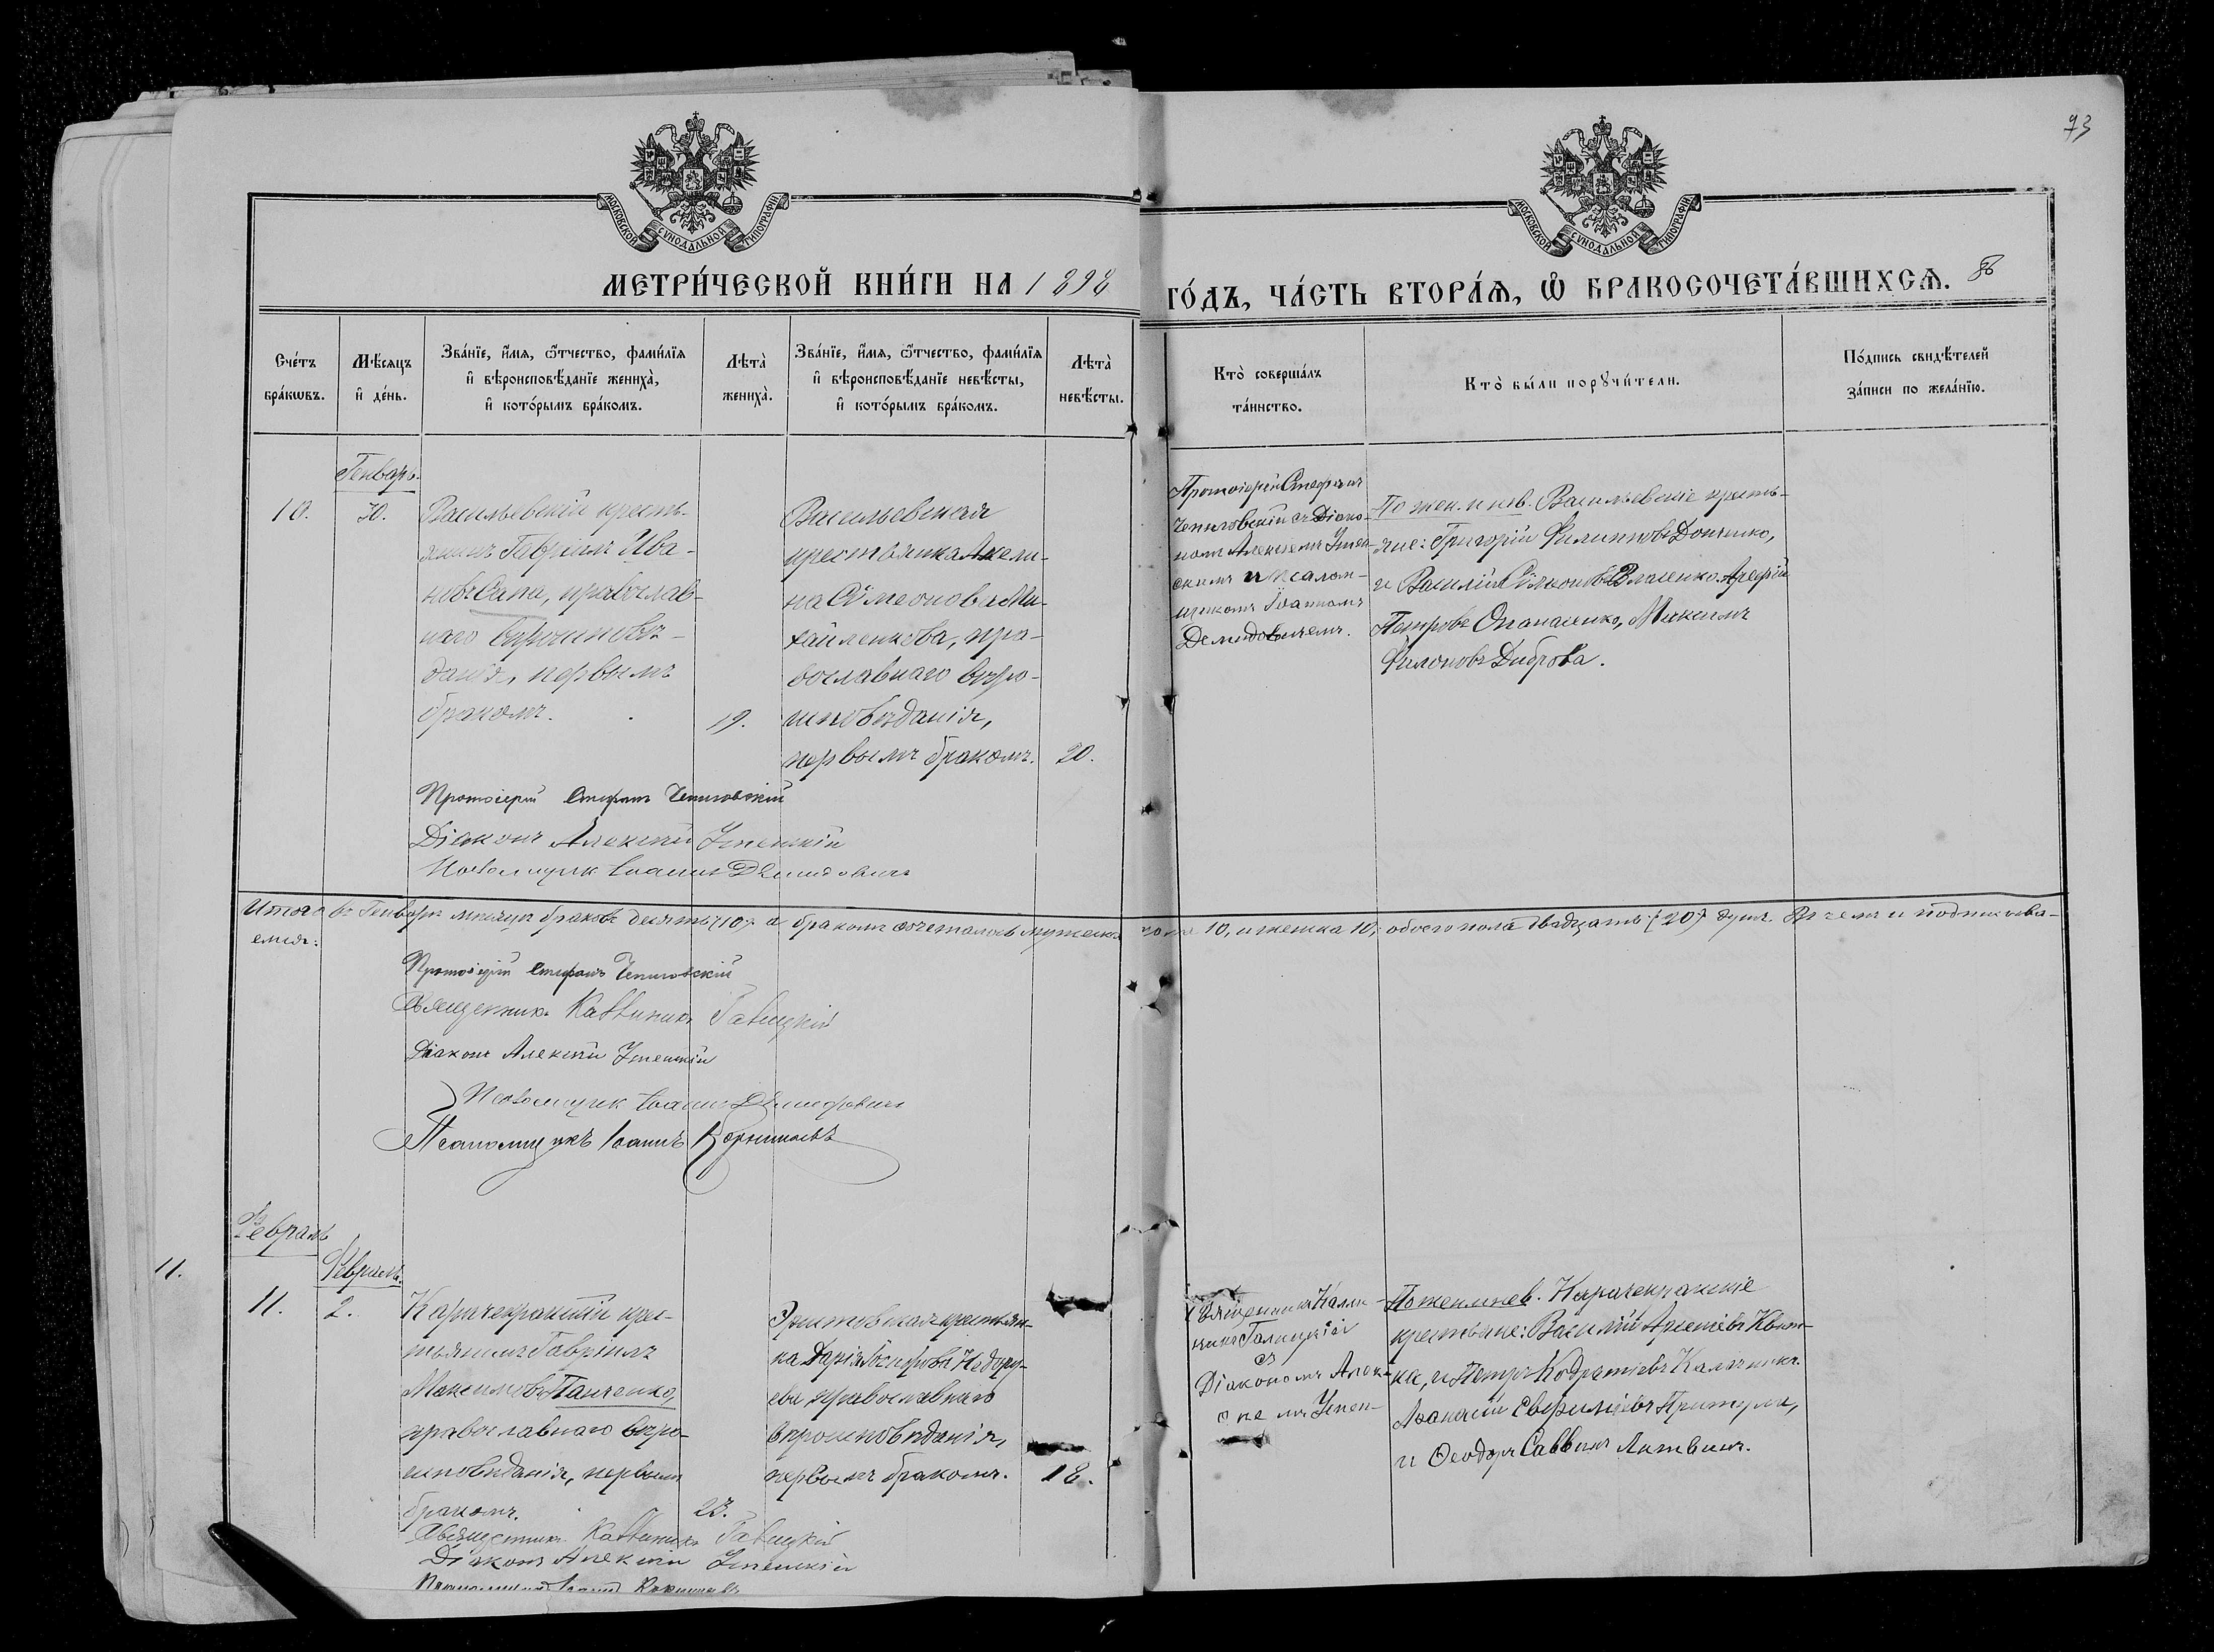 73
МОСКОВСКОЙ СѴНОДАЛЬНОЙ ТИПОГРАФІИ
МОСКОВСКОЙ СѴНОДАЛЬНОЙ ТИПОГРАФІИ
МЕТРИ́ЧЕСКОЙ КНИ́ГИ НА 1898
ГО́ДЪ, ЧА́СТЬ ВТОРА́Ѧ, Ѽ БРАКОСОЧЕТА́ВШИХСѦ.
Сче́тъ
бра́кѡвъ.
Мѣ́сяцъ
и҆ де́нь.
Зва́нїе, и҆́мя, ѻ҆́тчество, фами́лїя
и҆ вѣроисповѣ́данїе жениха̀,
и҆ кото́рымъ бра́комъ.
Лѣта̀
жениха̀.
Зва́нїе, и҆́мя, ѻ҆́тчество, фами́лїя
и҆ вѣроисповѣ́данїе невѣ́сты,
и҆ кото́рымъ бра́комъ.
Лѣта̀
невѣ́сты.
Кто̀ соверша́лъ
та́инство.
Кто̀ бы́ли порꙋчи́тели.
По́дпись свидѣ́телей
за́писи по жела́нїю.
Генварь.
10.
30.
Васильевскій кресть-
янинъ Гавріилъ Ива-
новъ Сапа, православ-
наго вѣроисповѣ-
данія, первымъ
бракомъ.
19.
Васильевская
крестьянка Акели-
на Сімеонова Ми-
хайленкова, пра-
вославнаго вѣро-
исповѣданія,
первымъ бракомъ.
20.
Протоіерей Стефанъ
Чепиговскій съ Діако-
номъ Алексіемъ Успен-
скимъ и псалом-
щикомъ Іоанномъ
Демидовичемъ.
По жен. и нев. Васильевскіе кресть-
яне: Григорій Филипповъ Донченко,
и Василій Власенко.
Петровъ Опанасенко, Максимъ
Филоновъ Диброва.
Протоіерей Стефанъ Чепиговскій
Діаконъ Алексій Успенскій
Псаломщик Іоаннъ Демидовичъ
Итого въ Генварѣ мѣсяцѣ браковъ десять (10) а бракомъ сочеталось мужеска пола 10, и женска 10, обоего пола двадцать (20) душъ. Въ чемъ и подписыва-
емся:
Протоіерей Стефанъ Чепиговскій
Священникъ Каллиникъ Галицкій
Діаконъ Алексій Успенскій
Псаломщик Іоаннъ Демидовичъ
Псаломщикъ Іоаннъ Корнильевъ
Февраль
11.
Февраль.
11.
2.
Карачекракскій крес-
тьянинъ Гавріилъ
Максимовъ Панченко,
православнаго вѣро-
исповѣданія, первымъ
бракомъ.
23.
Эристовская крестьян-
ка Дарія Іосифова
православнаго
вѣроисповѣданія,
первымъ бракомъ.
18.
Священникъ Калли-
никъ Галицкій
съ
Діакономъ Алек-
Успен-
По жен. и нев. Карачекракскіе
крестьяне: Василій Арсеніевъ Квит-
ка, и Петръ Кодратіевъ
Афанасій Евфиміевъ Притула,
и Ѳеодоръ Саввинъ Литвинъ.
Священникъ Каллиникъ Галицкій
Діаконъ Алексій Успенскій
Псаломщикъ Іоаннъ Корнильевъ